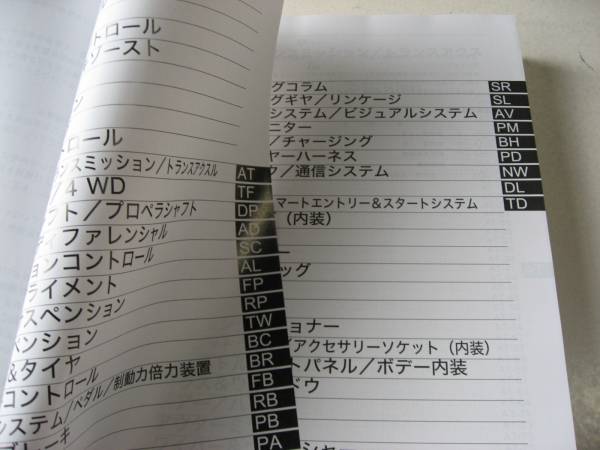 トロール
ソースト
ン
トロール
ンスミッション/トランスアクスル AT
/4 WD TF
フト/プロペラシャフト DP
ディファレンシャル AD
ションコントロール SC
ライメント AL
スペンション FP
ペンション RP
&タイヤ TW
コントロール BC
システム/ペダル/制動力倍力装置 BR
ブレーキ FB
RB
PB
PA
グコラム SR
グギヤ/リンケージ SL
システム/ビジュアルシステム AV
ニター PM
/チャージング BH
ヤーハーネス PD
ク/通信システム NW
DL
マートエントリー&スタートシステム TD
(内装)
ー
ッグ
ョナー
/アクセサリーソケット(内装)
トパネル/ボデー内装
ドウ